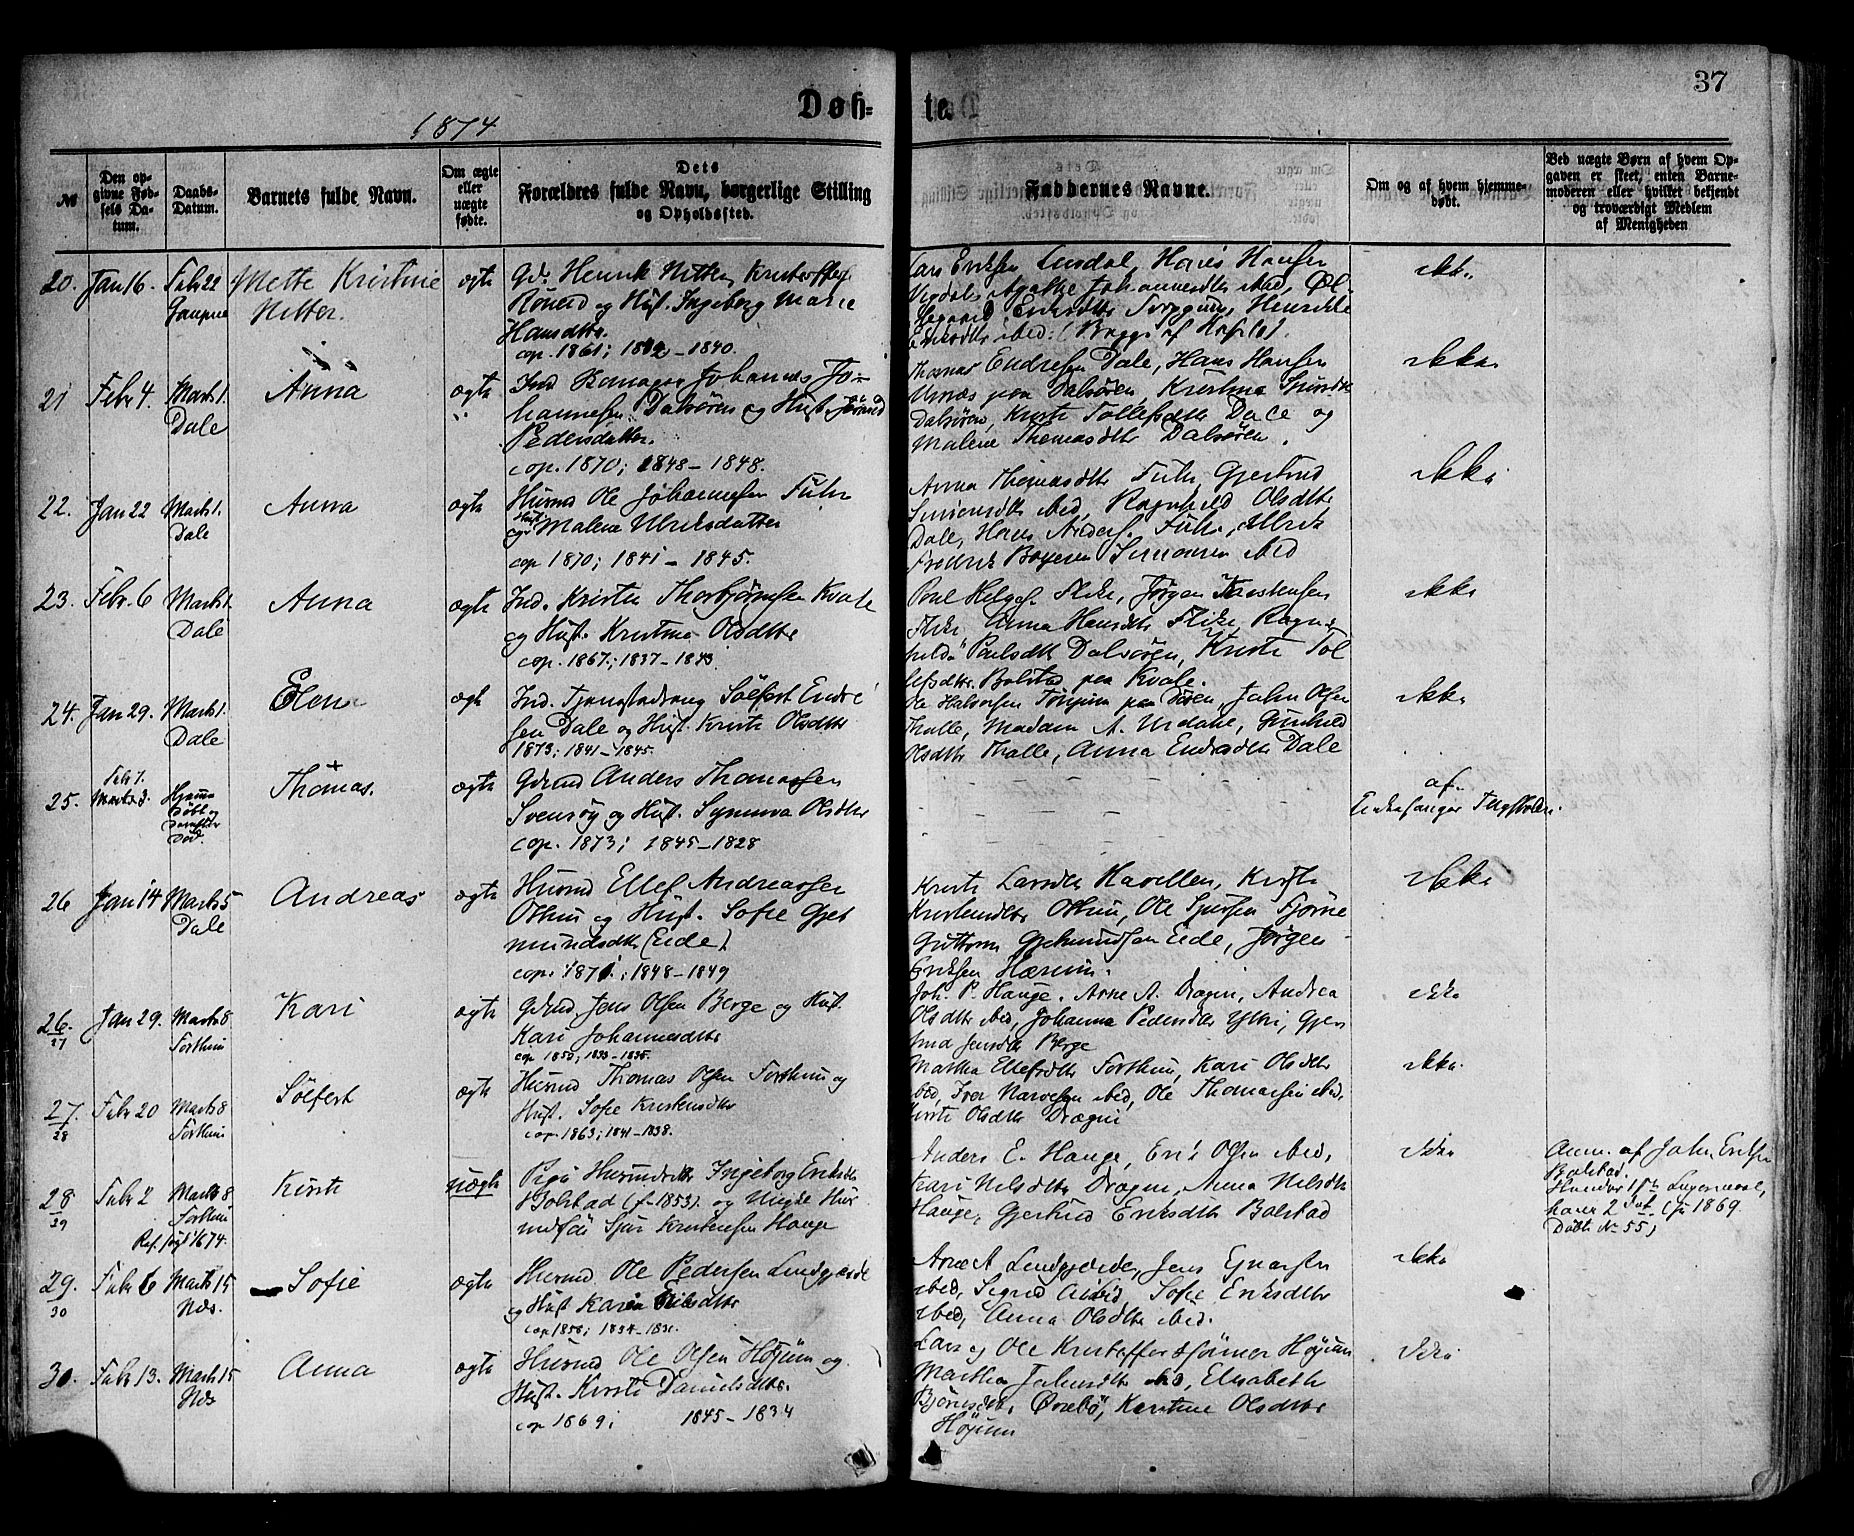 37
Døb= te.
1874
№
Den op-
givne Fød-
sels Da-
tum.
Daabs-
Datum.
Barnets fulde Navn.
Om ægte
eller
uægte
fødte.
Dets
Forældres fulde Navn, borgerlige Stilling
og Opholdssted.
Faddernes Navne.
Om og af hvem hjemme-
døbt.
Ved uægte Børn af hvem Op-
gaven er skeet, enten Barne-
moderen eller hvilket bekjendt
og troværdigt Medlem
af Menigheden
20. Jan 16. Febr 22
Gaupne
Mette Kristine
Nitter.
ægte
Gdr. Henrik Nitter Kristoffers.
og Hust. Ingeborg Marie
Hansdtr.
cop. 1861; 1840.
Lars Eriksen Hans Hansen
Agathe Johannesdtr ibid, Øl-
Eriksdtr Henrikke
Eriksdtr ibid.
ikke
21 Febr 4. Marts 1.
Dale
Anna
ægte
Ind. Johannes Jo-
hannesen Dalsøren og Hust.
Pedersdatter.
cop. 1870; 1848 – 1848.
Thomas Endresen Dale, Hans Hansen
Urnæs paa Dalsøren, Kristine
Dalsøren, Kirsti Tollefsdtr Dale og
Malene Thomasdtr Dalsøren.
ikke
22. Jan 22 Marts 1.
Dale
Anna
ægte
Husmd Ole Johannesen Fuhr
og Hust Malene Ulriksdatter
cop 1870; 1841 – 1845.
Anna Thomasdtr Fuhr, Gjertrud
Simensdtr ibid, Ragnhild Olsdtr
Dale, Hans Anders. Fuhr, Ulrik
Fredrik Simonsen ibid
ikke
23. Febr. 6 Marts 1.
Dale
Anna
ægte
Ind. Kristen Thorbjørnsen Kvale
og Hust. Kristine Olsdtr
cop. 1867; 1837 – 1843.
Poul Helges. Flike, Jørgen Kristensen
Flike Anna Hansdtr Flike, Ragn-
hilda Paulsdtr Dalsøren, Kirsti Tol
lefsdtr. Bolstad paa Kvale.
ikke
24. Jan 29. Marts 1.
Dale
Elen
ægte
Ind. Tjenestedreng Sølfest Endre
sen Dale og Hust. Kirsti Olsdtr
1873; 1841 – 1845.
Ole Halvorsen Tørjum paa Søren, John Olsen
Talle, Madam A. Urdahl, Gunhild
Olsdtr Talle, Anna Endresdtr Dale
ikke
25. Febr 7.
Marts 3.
Hjemme
døbt og
derefter
død.
Thomas.
ægte
Gdmd Anders Thomassen
Svensøy og Hust. Synneva Olsdtr
cop. 1873; 1845 – 1828
af
26 Jan 14 Marts 5
Dale
Andreas
ægte
Husmd Ellef Andreassen
Ottum og Hust. Sofie Gjet
mundsdtr (Eide)
cop. 1871; 1848 – 1849
Kirsti Larsdtr Havellen, Kirsti
Kristensdtr Ottum, Ole Sjursen Fjørne
Guttorm Gjetmundsen Eide, Jørgen
Eriksen Hærum.
ikke
26.
27
Jan 29. Marts 8
Forthun
Kari
ægte
Gdmd Jens Olsen Berge og Hust.
Kari Johannesdtr
cop. 1850; 1833 – 1835.
Joh. P. Hauge. Arne A. Drægni, Andrea
Olsdtr ibid, Johanna Pedersdtr Yttri, Gjer
trud Jensdtr Berge
ikke
27.
28
Febr 20 Marts 8
Forthun
Sølfest
ægte
Husmd Thomas Olsen Forthun og
Hust. Sofie Kristensdtr
cop. 1863; 1841 – 1838.
Martha Ellefsdtr Forthun, Kari Olsdtr
ibid, Iver Narvesen ibid, Ole Thomassen ibid,
Kirsti Olsdtr Drægni
ikke
28
29
Febr 2 Marts 8
Forthun
Kirsti
uægte
Pige Husmdsdtr Ingeborg Eriksdtr
Bolstad (f. 1853) og Ungk Hus
mdssøn Sjur Kristensen Hauge
Anders E. Hauge, Erik Olsen ibid,
Kari Nilsdtr Drægni, Anna Nilsdtr
Hauge, Gjertrud Eriksdtr Bolstad
ikke
Anm. af John Eriksen
Bolstad,
Hendes 1ste Leiermaal,
hans 2det (jf 1869
Døbte No 55)
29.
30
Febr 6 Marts 15
Næs.
Sofie
ægte
Husmd. Ole Pedersen Lundgjærde
og Hust Karen Nilsdtr
cop 1858; 1834 – 1831.
Arne A Lundgjerde, Jens
ibid, Sigrid ibid, Sofie Eriksdtr
ibid, Anna Olsdtr ibid.
ikke
30. Febr 13. Marts 15
Næs
Anna
ægte
Husmd Ole Olsen Høyum og
Hust. Kirsti Danielsdtr.
cop 1869; 1845 – 1834
Lars og Ole Kristoffersønner Høyum
Martha Johnsdtr ibid, Elisabeth
Bjørnsdtr Ørebø, Kirstine Olsdtr
Høyum
ikke